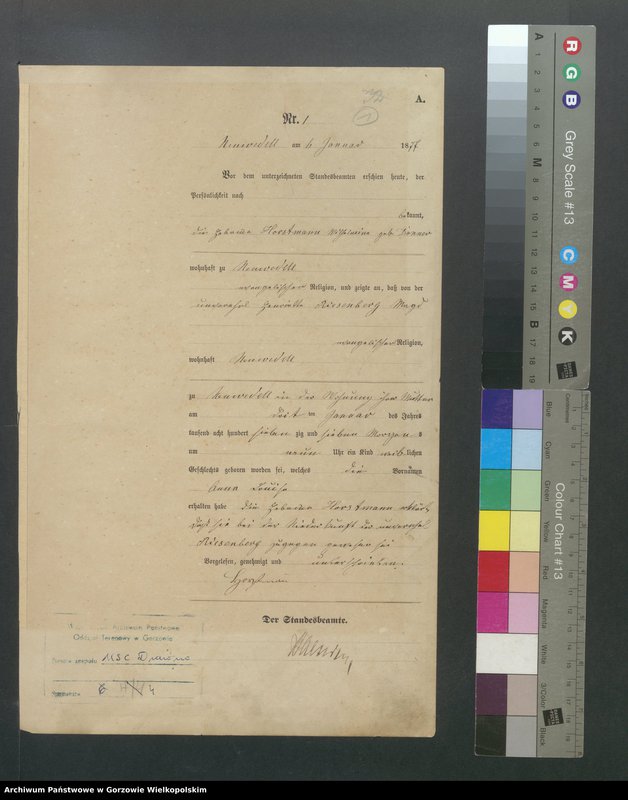 A.
Nr. 1
Neuwedell am 6 Januar 1877
Vor dem unterzeichneten Standesbeamten erschien heute, der
Persönlichkeit nach
bekannt,
die Hebamme Horstmann Wilhelmine geb.
wohnhaft zu Neuwedell
evangelischer Religion, und zeigte an, daß von der
unverehel Henriette Riesenberg Magd
evangelischer Religion,
wohnhaft Neuwedell
zu Neuwedell in der Wohnung ihrer Mutter
am ten Januar des Jahres
tausend acht hundert sieben zig und sieben Morgens
um neun Uhr ein Kind weiblichen
Geschlechts geboren worden sei, welches die Vornamen
Anna Louise
erhalten habe die Hebamme Horstmann erklärt
daß sie bei der Niederkunft der unverehel
Riesenberg zugegen gewesen sei
Vorgelesen, genehmigt und unterschrieben.
Horstmann
Der Standesbeamte.
Archiwum Państwowe
Oddział Terenowy w Gorzowie
Nazwa zespołu MSC Drawno
Sygnatura
Archiwum Państwowe w Gorzowie Wielkopolskim
R
G
B
Grey Scale #13
C
M
Y
K
A 1 2 3 4 5 6 M 7 8 9 10 11 12 13 14 15 B 17 18 19
Colour Chart #13
Blue
Cyan
Green
Yellow
Red
Magenta
White
3/Color
Black
Centimetres